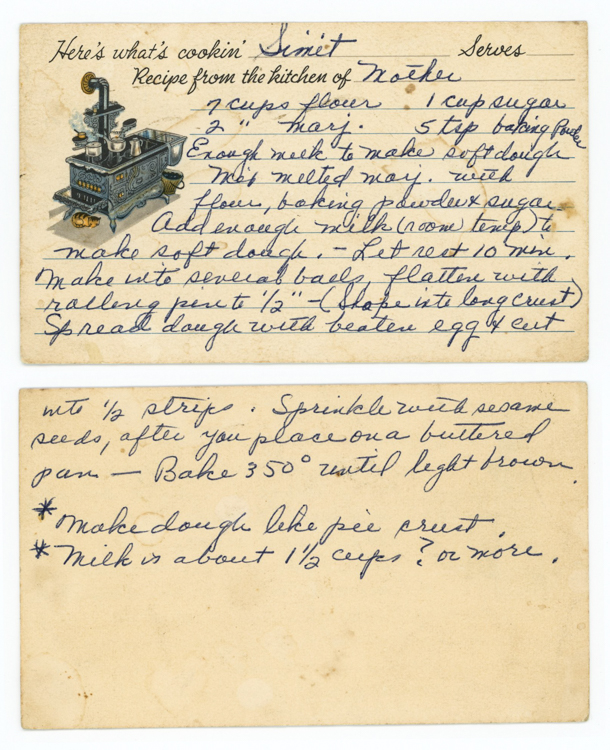 Here's what's cookin' Simit Serves
Recipe from the kitchen of Mother
7 cups flour 1 cup sugar
2 " marj. 5 tsp baking Powder
Enough milk to make soft dough
Mix melted marj. with
flour, baking powder & sugar.
Add enough milk (room temp) to
make soft dough. - Let rest 10 min.
Make into several balls, flatten with
rolling pin to 1/2" - (shape into long crust)
Spread dough with beaten egg & cut
into 1/2 strips. Sprinkle with sesame
seeds, after you place on a buttered
pan — Bake 350° until light brown.
* Make dough like pie crust.
* Milk is about 1 1/2 cups? or more.